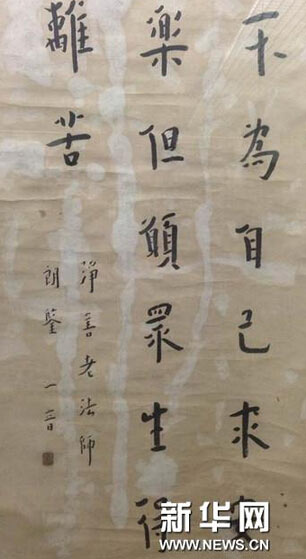 不為自己求安
樂但願眾生得
離苦
淨善老法師
朗鑒 一音
新华网
WWW.NEWS.CN